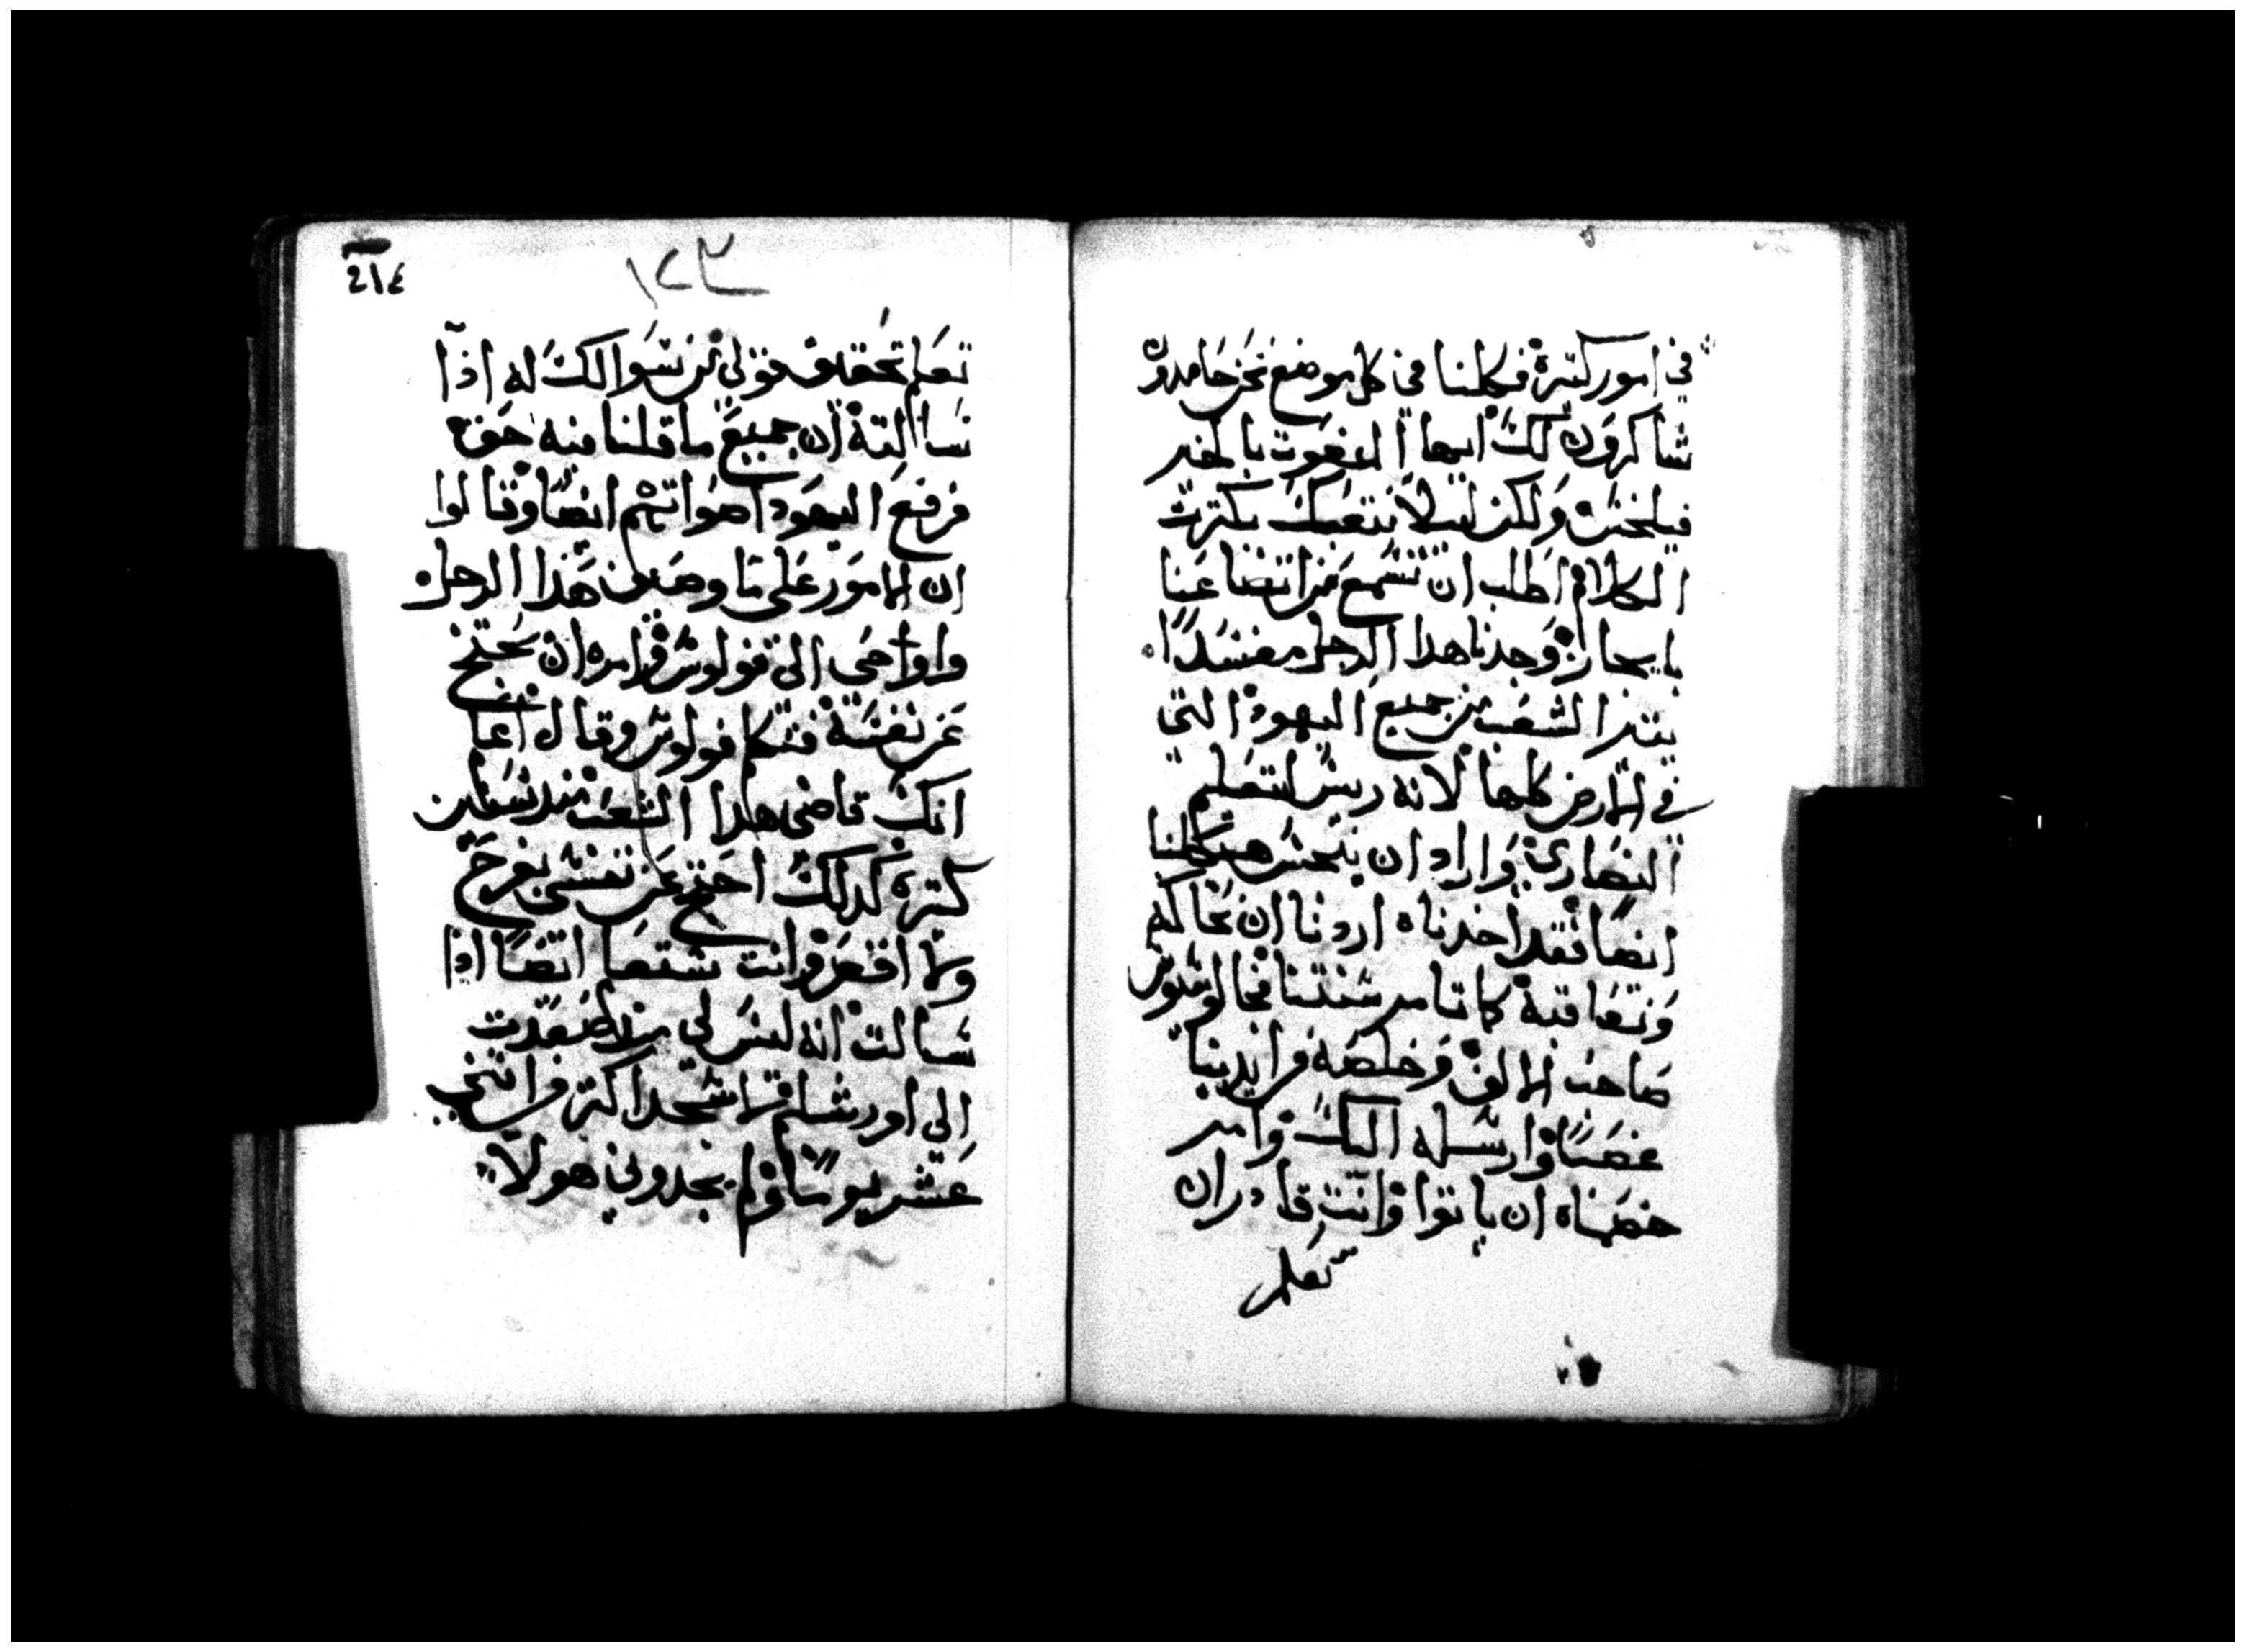 في امور كتيرة فكلنا في كل موضع نحن حامدون
شاكرون لك ايها المنعوت بالخير
فيلخس ولكن ليلا نتعبك بكترت
الكلام اطلب ان تسمع من اتضاعنا
بايجاز وجدنا هدا الرجل مفسدًا
يتير الشغب من جميع اليهود التي
في الارض كلها لانه ريس لتعليم
النصاري واراد ان ينجس هيكلنا
ايضا فقد اخدناه اردنا ان نحاكمه
ونعاقبه كما تامر سنتنا فجا لوسيوس
صاحب الالف وخلصه من ايدينا
غصبًا وارسله اليك وامر
خصماه ان ياتوا وانت قادر ان
تعلم
٢١٤
١٢٣
تعلم تحقيق قولي من سوالك له اذا
سالته ان جميع ما قلنا فيه حق
فرفع اليهود اصواتهم ايضًا وقالوا
ان الامور على ما وصف هذا الرجل
واواحى الى فولوس وامره ان يحتج
عن نفسه فتكلم فولوس وقال اعلم
انك قاضي هدا الشعب مند سنين
كتيرة كدلك احتج عن نفسي بفرح
ولا افزع وانت ستعلم ايضًا اذا
سالت انه ليس لي مند صعدت
الي اورشليم لاسجد اكتر من اتني
عشر يومًا ولم يجدوني هولاء